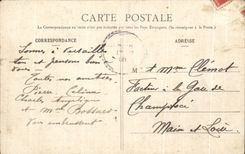 CARTE POSTALE
La Correspondance au recto n'est pas acceptée par tous les Pays Étrangers. (Se renseigner à la Poste)
CORRESPONDANCE
ADRESSE
Sommes à Versailles
et pensons bien
à vous
Toutes nos amitiés
Pierre Céline
Charles Angélique
et Mme
Vous embrassent
M et Mme Clémot
Facteur à la Gare de
Champtocé
Maine et Loire